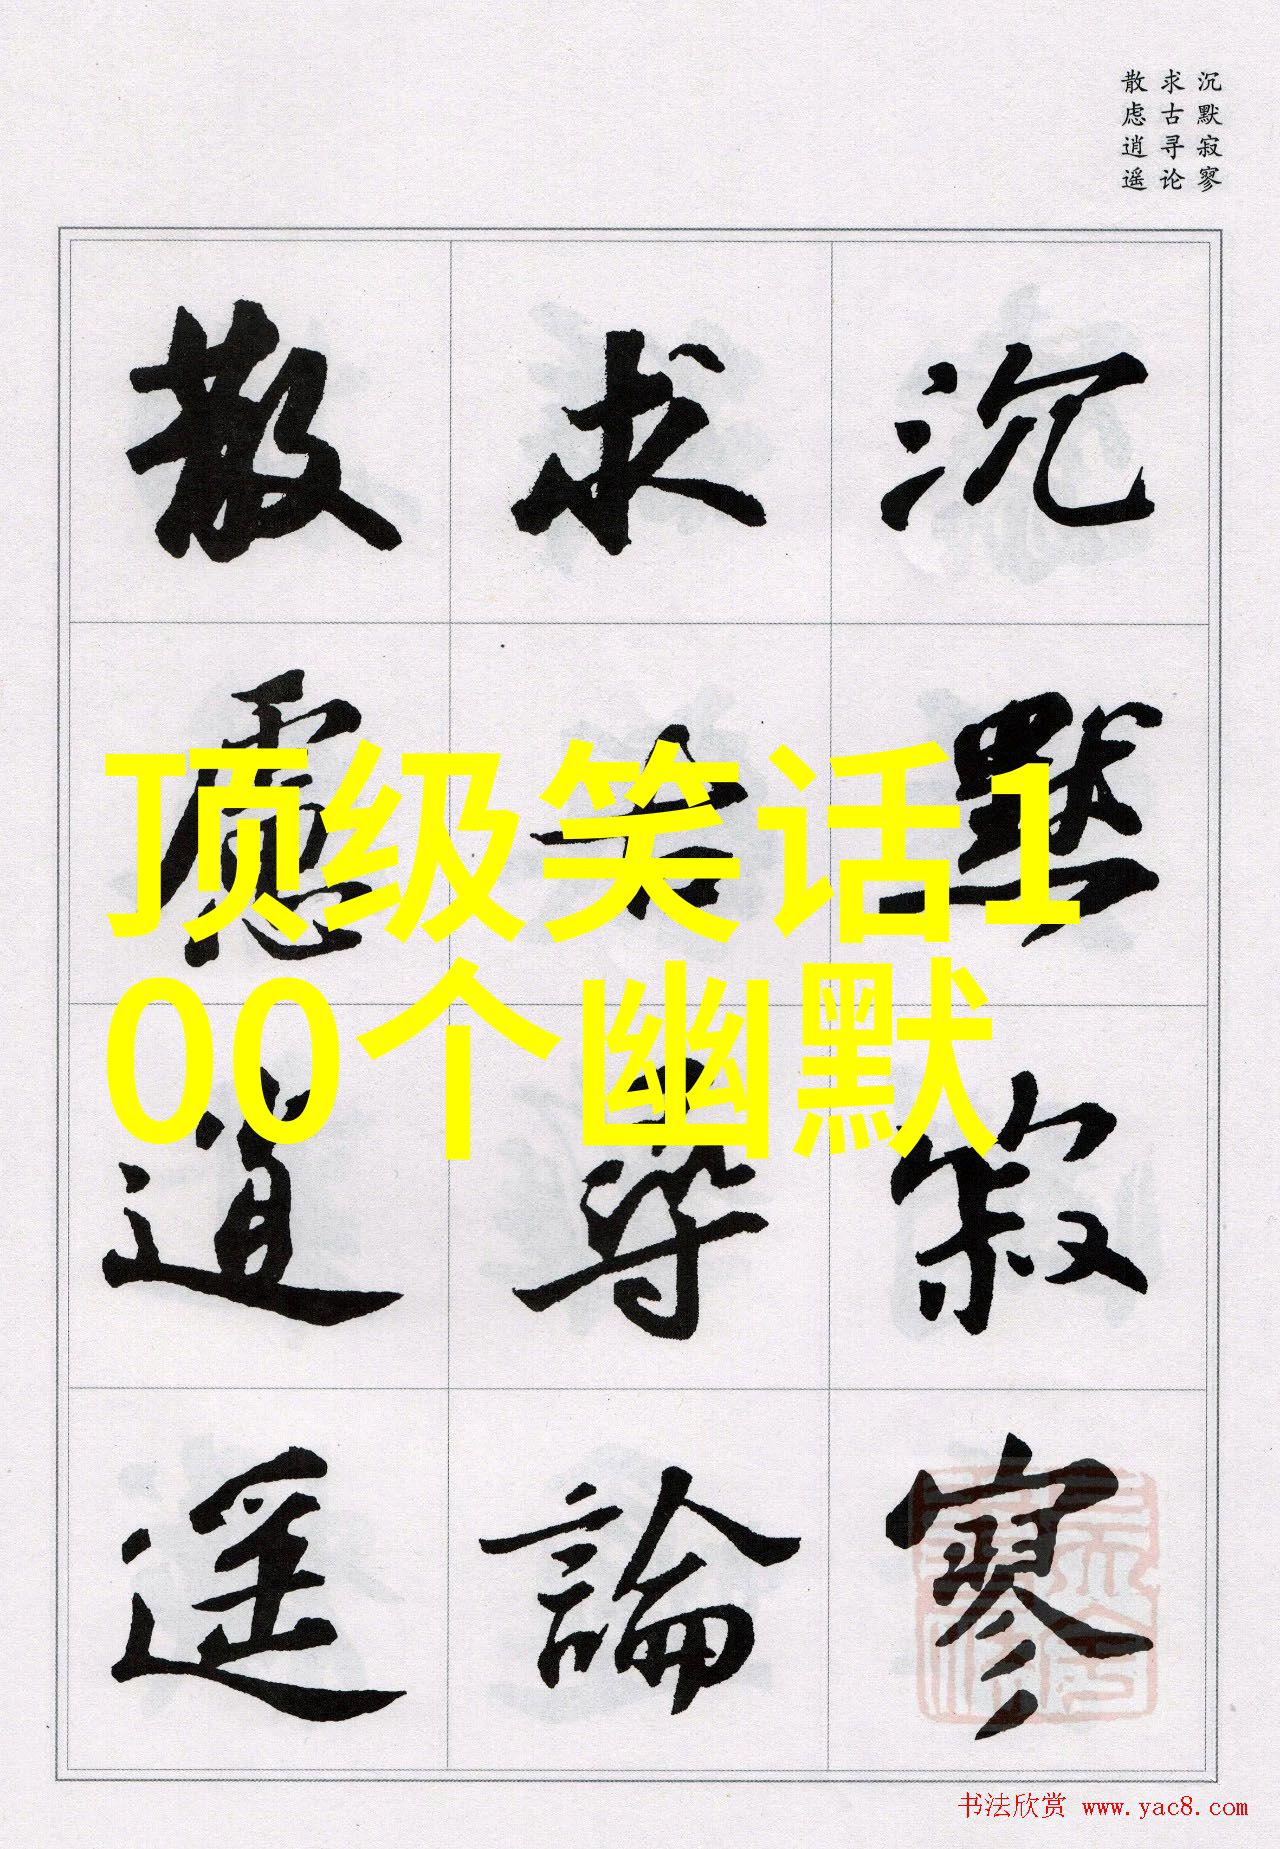 沉默寂寥
求古寻论
散虑逍遥
沉默寂寥
求古尋論
散慮逍遥
顶级笑话1
00个幽默
书法欣赏 www.yac8.com